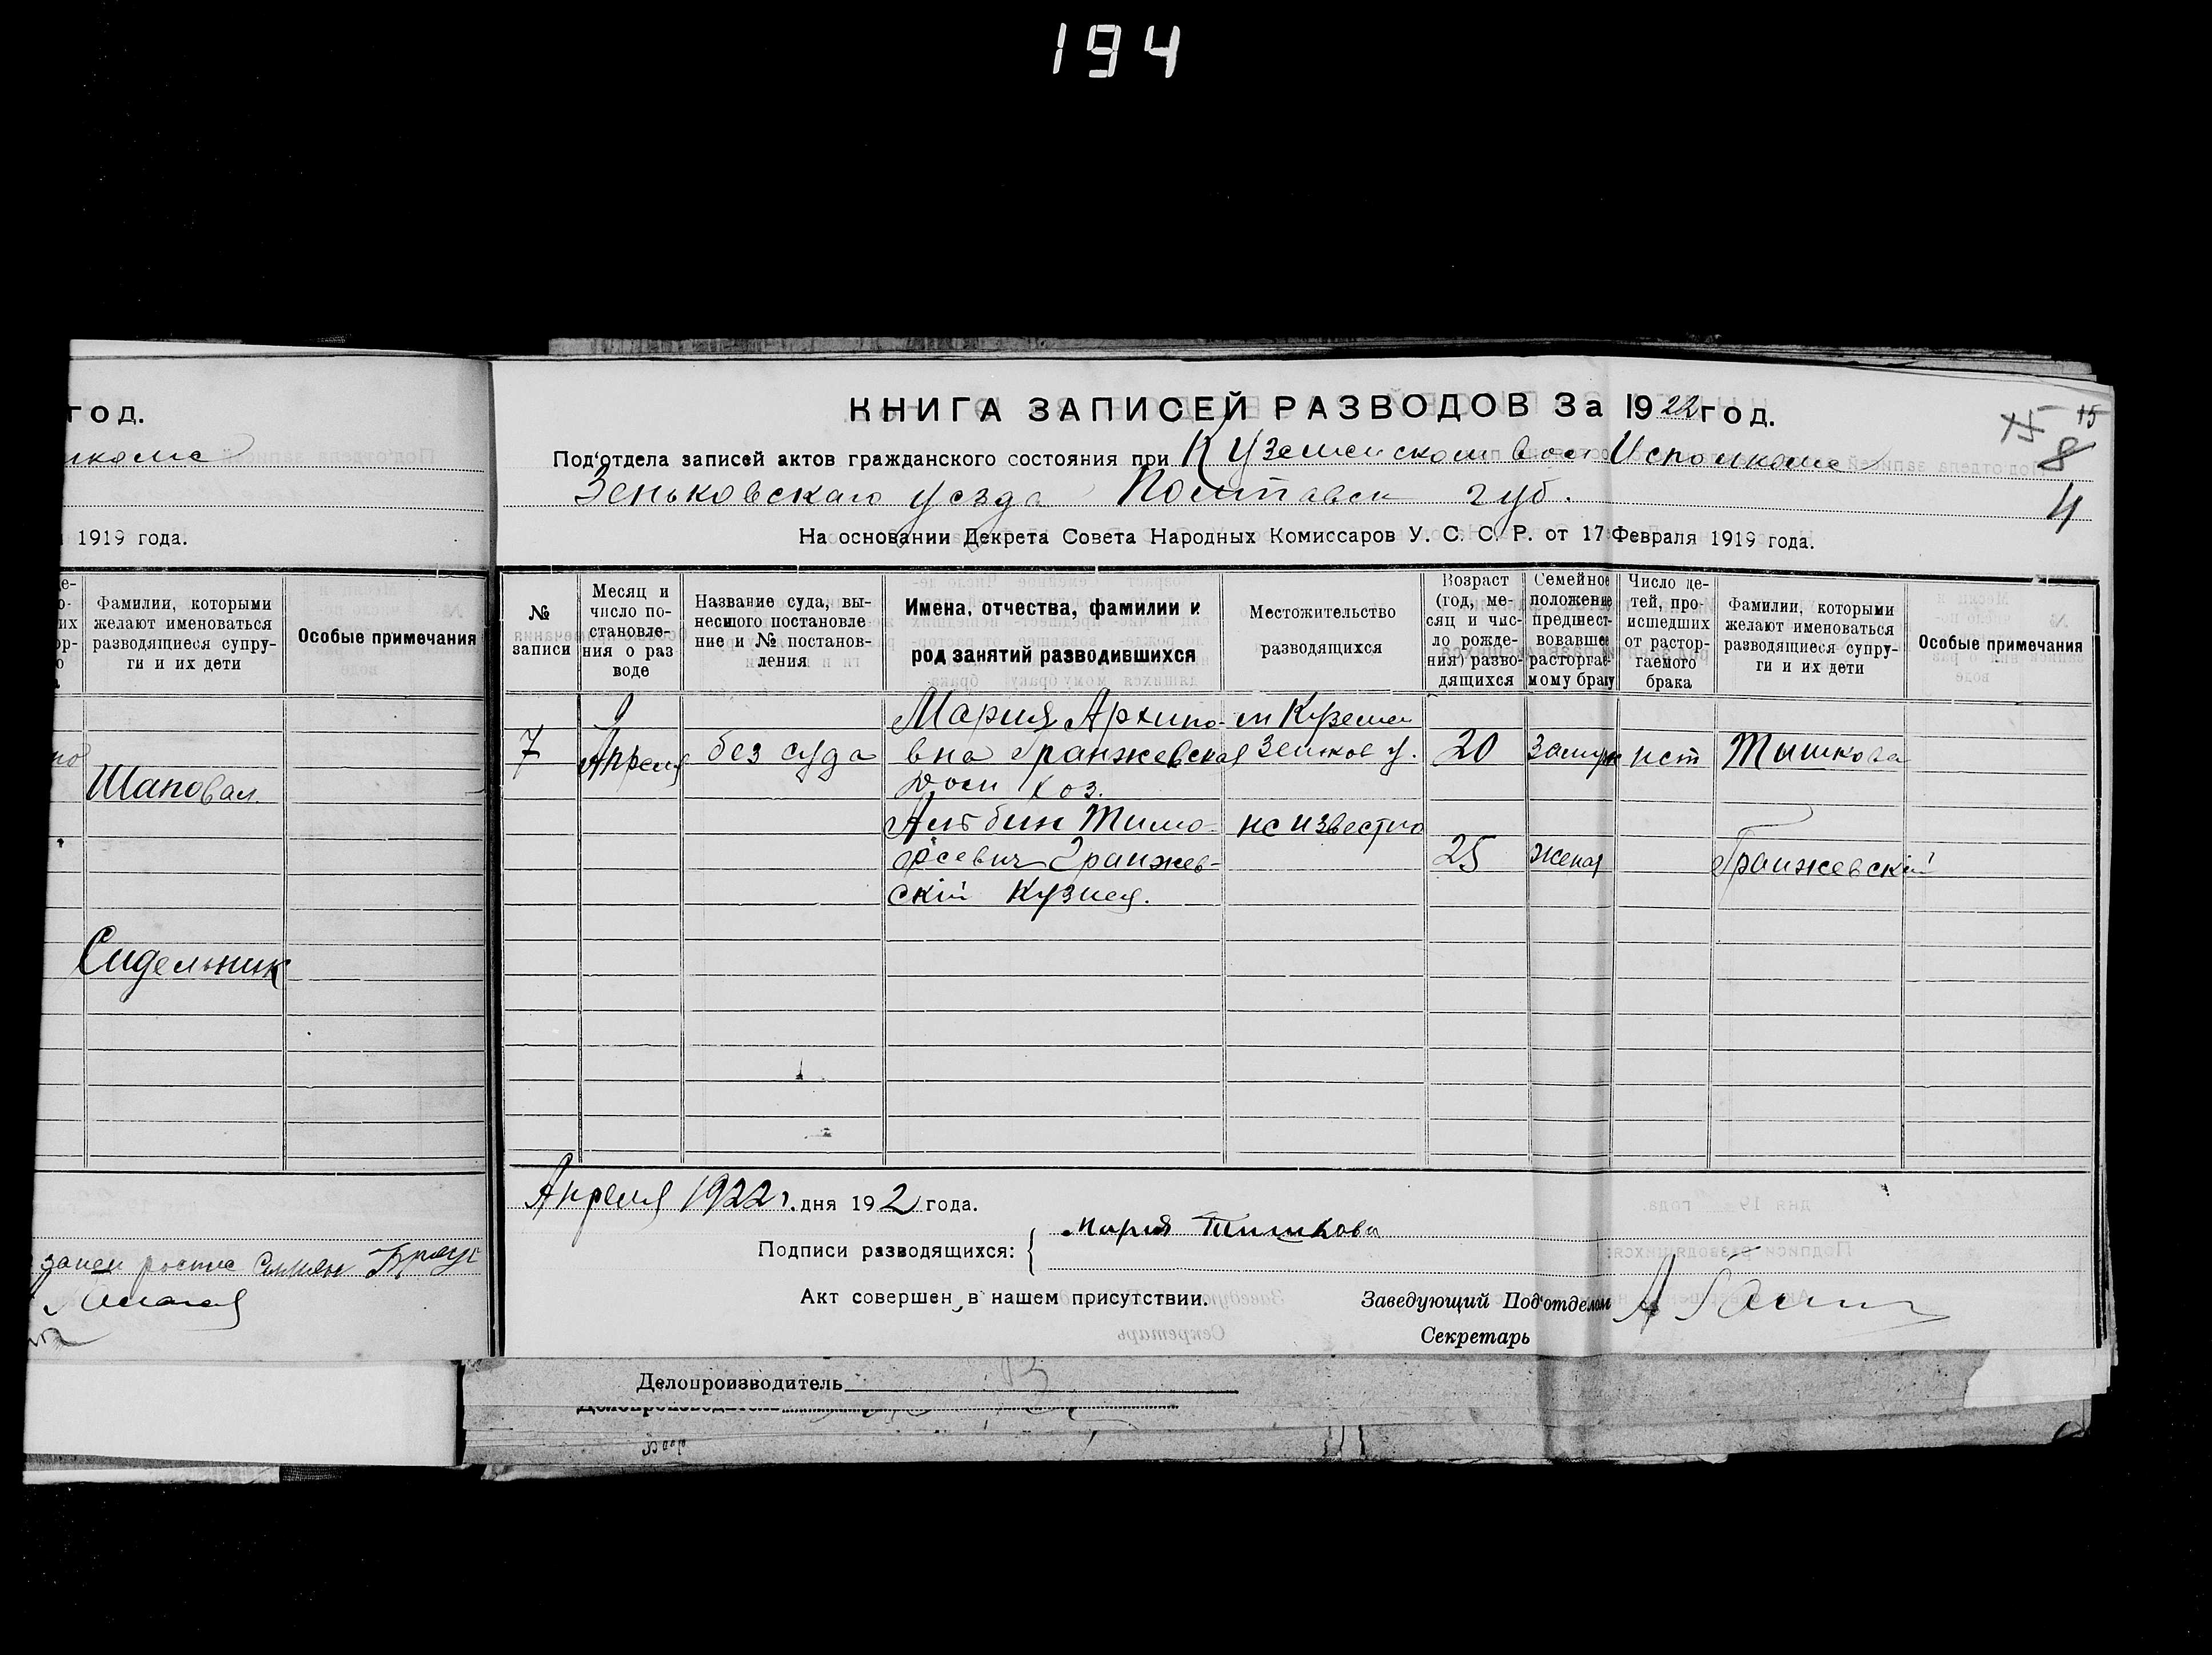 194
год.
1919 года.
Фамилии, которыми
желают именоваться
разводящиеся супру-
ги и их дети
Особые примечания
Шаповал.
Сидельник
КНИГА ЗАПИСЕЙ РАЗВОДОВ За 1922 год.
15
15
8
4
Под'отдела записей актов гражданского состояния при Куземенском вол Исполкоме
Зеньковскаго уезда Полтавск губ.
На основании Декрета Совета Народных Комиссаров У. С. С. Р. от 17 Февраля 1919 года.
№
записи
Месяц и
число по-
становле-
ния о раз
воде
Название суда, вы-
несшого постановле
ние и № постанов-
ления
Имена, отчества, фамилии и
род занятий разводившихся
Местожительство
разводящихся
Возраст
(год, ме-
сяц и чис-
ло рожде-
ния) разво-
дящихся
Семейное
положение
предшест-
вовавшее
расторгае-
мому браку
Число де-
тей, про-
исшедших
от растор-
гаемого
брака
Фамилии, которыми
желают именоваться
разводящиеся супру-
ги и их дети
Особые примечания
7
9
Апреля
без суда
Мария Архипо-
вна Гранжевская
Дом Хоз.
м Куземен
Зеньков у.
20
Замуж
нет
Тышкова
Альбин Тимо-
феевич Гранжев-
скій Кузнец.
не известно
25
женат
Гранжевскій
Апреля 1922 г. дня 192 года.
Подписи разводящихся:
Мария Тишкова
Акт совершен в нашем присутствии.
Заведующий Под'отделом
Секретарь
Делопроизводитель